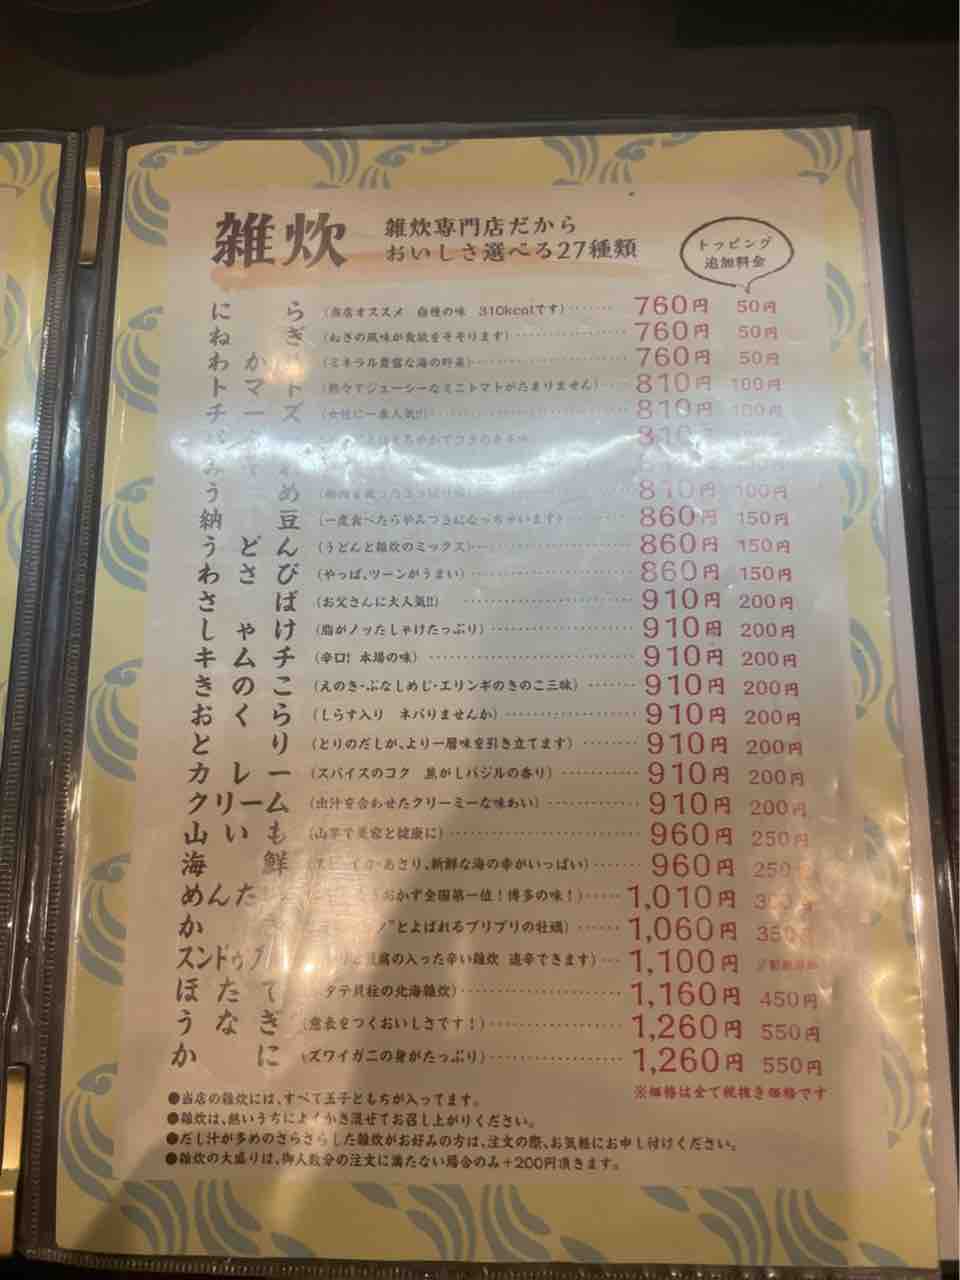 雑炊
雑炊専門店だから
おいしさ選べる27種類
トッピング
追加料金
にら (当店オススメ 自慢の味 310kcalです) 760円 50円
ねぎ (ねぎの風味が食欲をそそります) 760円 50円
わか (ミネラル豊富な海の野菜) 760円 50円
トマト (熱々でジューシーなミニトマトがたまりません) 810円 100円
チーズ (女性に一番人気!!) 810円 100円
810
う め 810円 100円
納豆 (一度食べたらやみつきになっちゃいます) 860円 150円
うどん (うどんと雑炊のミックス) 860円 150円
わさび (やっぱ、ツーンがうまい) 860円 150円
さば (お父さんに大人気!!) 910円 200円
しゃけ (脂がノッたしゃけたっぷり) 910円 200円
キムチ (辛口! 本場の味) 910円 200円
きのこ (えのき・ぶなしめじ・エリンギのきのこ三味) 910円 200円
おくら (しらす入り ネバりませんか) 910円 200円
とり (とりのだしが、より一層味を引き立てます) 910円 200円
カレー (スパイスのコク 焦がしバジルの香り) 910円 200円
クリーム (出汁を合わせたクリーミーな味わい) 910円 200円
山いも (山芋で美容と健康に) 960円 250円
海鮮 あさり、新鮮な海の幸がいっぱい) 960円 250円
めんた おかず全国第一位!博多の味!) 1,010円
か "とよばれるプリプリの牡蠣) 1,060円 350円
スンドゥブ 豆腐の入った辛い雑炊 追辛できます) 1,100円
ほたて タテ貝柱の北海雑炊) 1,160円 450円
うなぎ (意表をつくおいしさです!) 1,260円 550円
かに (ズワイガニの身がたっぷり) 1,260円 550円
※価格は全て税抜き価格です
●当店の雑炊には、すべて玉子ともちが入ってます。
●雑炊は、熱いうちによくかき混ぜてお召し上がりください。
●だし汁が多めのさらさらした雑炊がお好みの方は、注文の際、お気軽にお申し付けください。
●雑炊の大盛りは、御人数分の注文に満たない場合のみ+200円頂きます。